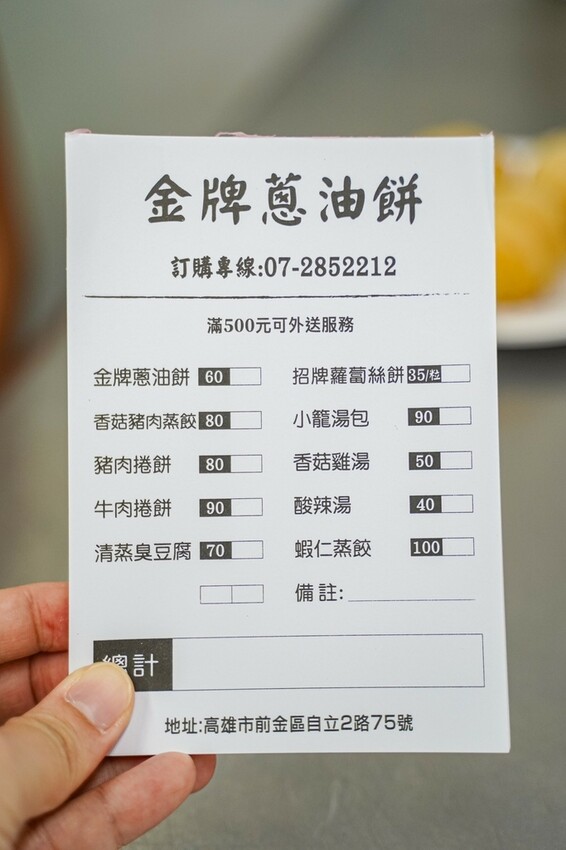 金牌蔥油餅
訂購專線:07-2852212
滿500元可外送服務
金牌蔥油餅 60 招牌蘿蔔絲餅 35/粒
香菇豬肉蒸餃 80 小籠湯包 90
豬肉捲餅 80 香菇雞湯 50
牛肉捲餅 90 酸辣湯 40
清蒸臭豆腐 70 蝦仁蒸餃 100
備註:
總計
地址:高雄市前金區自立2路75號